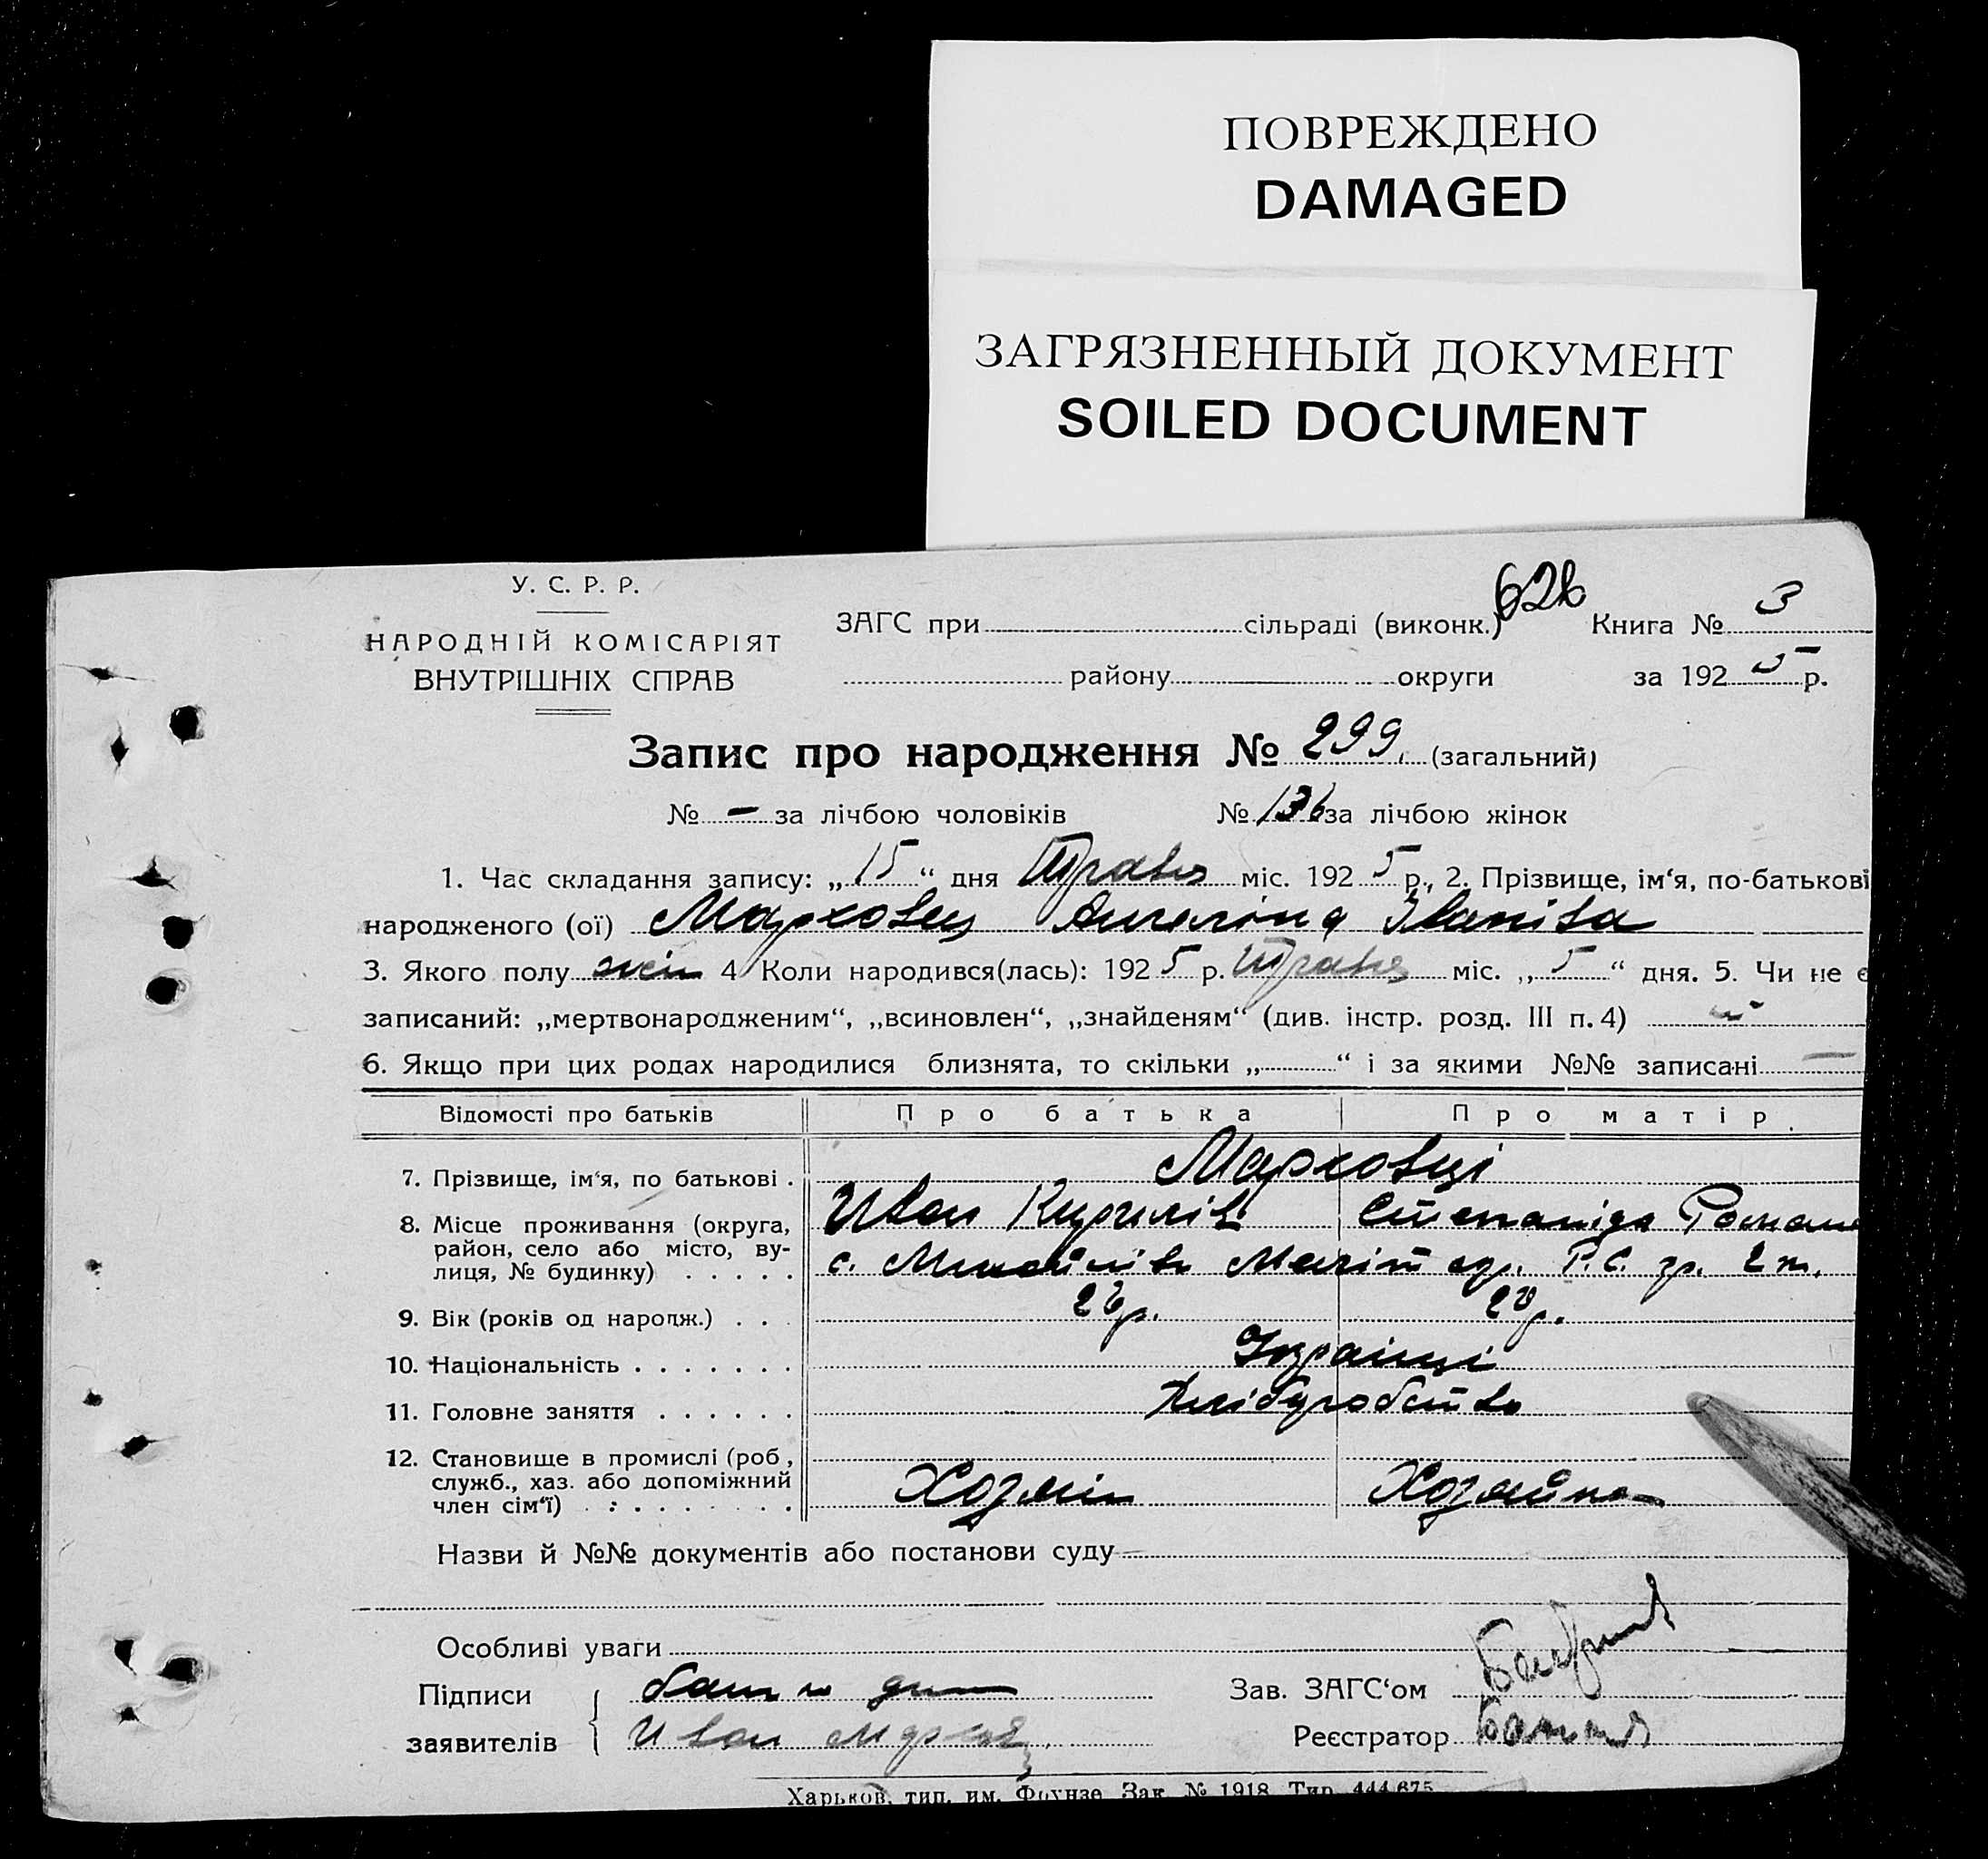 ПОВРЕЖДЕНО
DAMAGED
ЗАГРЯЗНЕННЫЙ ДОКУМЕНТ
SOILED DOCUMENT
У. С. Р. Р.
НАРОДНІЙ КОМІСАРІЯТ
ВНУТРІШНІХ СПРАВ
ЗАГС при сільраді (виконк.) 626 Книга № 3
району округи за 1925 р.
Запис про народження № 299 (загальний)
№ – за лічбою чоловіків № 136 за лічбою жінок
1. Час складання запису: „15“ дня Травня міс. 1925 р., 2. Прізвище, ім‘я, по-батькові
народженого (ої) Марховец Ангеліна Іванівна
3. Якого полу жін 4 Коли народився(лась): 1925 р. Травня міс. „5“ дня. 5. Чи не є
записаний: „мертвонародженим“, „всиновлен“, „знайденям“ (див. інстр. розд. III п. 4)
6. Якщо при цих родах народилися близнята, то скільки „ “ і за якими №№ записані —
Відомості про батьків Про батька Про матір
7. Прізвище, ім‘я, по батькові . Марховці
8. Місце проживання (округа, Иван Кирилів Степаніда Романо
район, село або місто, ву-
лиця, № будинку) . . . . . с. р. 2 т.
9. Вік (років од народж.) . . . 26 р. 20 р.
10. Національність . . . . . . . Українці
11. Головне заняття . . . . . . Хліборобство
12. Становище в промислі (роб,
служб., хаз. або допоміжний
член сім‘ї) . : . . . . . . . Хозяін Хозяйка
Назви й №№ документів або постанови суду
Особливі уваги
Підписи Зав. ЗАГС‘ом
заявителів Иван Марховец Реєстратор
Харьков, тип. им. Фрунзе. Зак. № 1918. Тир. 444.675